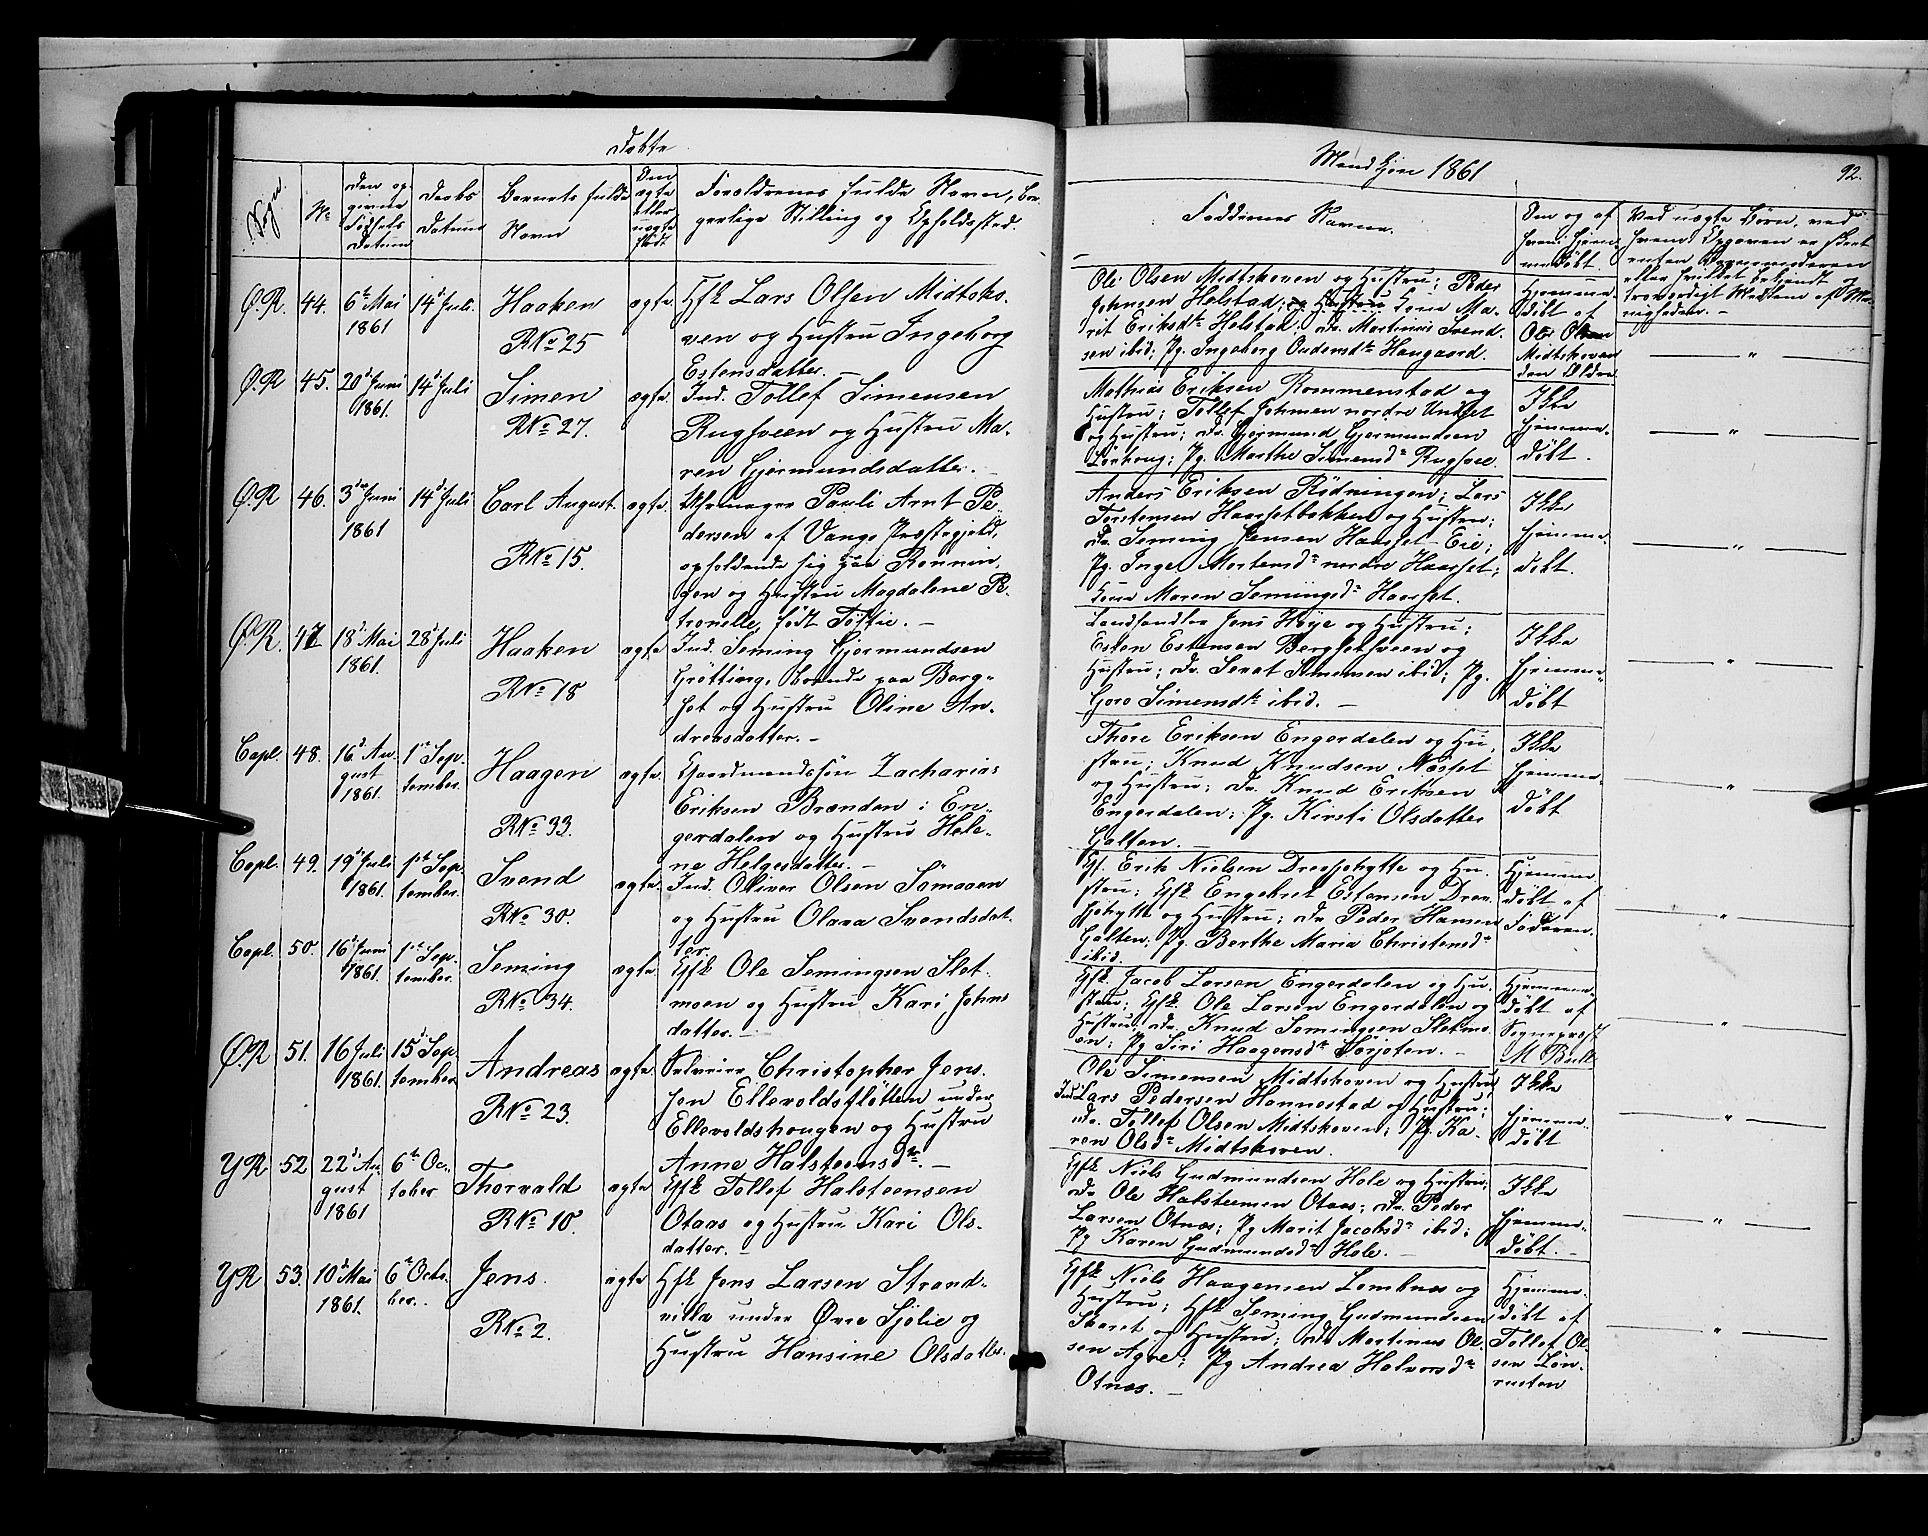 Døbte
Mandkjøn 1861
92.
Sogn.
No
Den opgivne Fødsels Datum
Daabs Datum
Barnets fulde Navn
Om ægte eller uægte født.
Forældrenes fulde Navn, borgerlige Stilling og Opholdssted.
Faddernes Navne.
Om og af hvem hjemmedøbt.
Ved uægte Børn, ved hvem Opgaven er skeet
Ø.R. 44. 6te Mai 1861 14de Juli. Haaken ægte. Gfk Lars Olsen Midtsko-
RNo 25
ven og Hustru Ingeborg
Estensdatter. —
Ole Olsen Midtskoven og Hustru; Peder
Johnsen Helstad; og Hustru Kone Ma-
rit Eriksdtr Helstad; Dr. Martinus Svend-
sen ibid; Pg. Ingeborg Oudensdtr Haugaard.
Hjemme-
døbt af
Ole Olsen
Midtskoven
den Ældre
Ø.R 45. 20de Juni 1861. 14de Juli Simen ægte. Ind. Tollef Simensen
RNo 27.
Rugsveen og Hustru Ma-
ren Gjermundsdatter. —
Mathias Eriksen Rommenstad og
Hustru; Tollef Johnsen nordre Undset
og Hustru; Dr. Gjermund Gjermundsen
Lørhoug; Pg. Marthe Simensdr
Ikke
hjemme-
døbt.
Ø.R 46. 3die Juni 1861 14de Juli Carl August ægte. Uhrmager Pauli Arnt Pe-
RNo 15.
dersen af Vangs Præstegjeld,
opholdende sig paa Rønnin-
gen og Hustru Magdalene Pe-
tronelle, født Tøstie. —
Anders Eriksen Rødningen; Lars
Torstensen Haarsetbakken og Hustru;
Dr. Seming Jensen Haarset-Eie;
Pg. Inge Mortensdr nordre Haarset;
Kone Maren Semingsdr Haarset.
Ikke
hjemme-
døbt.
Ø.R. 47 18de Mai 1861. 28de Juli Haaken ægte. Ind. Seming Gjermundsen
RNo 18
Grøtting, boende paa Berg-
set og Hustru Oline An-
dreasdatter. —
Landhandler Jens Høye og Hustru;
Esten Estensen Bergsetsveen og
Hustru; Dr. Simensen ibid; Pg.
Goro Simensdtr ibid. —
Ikke
hjemme-
døbt
Capl. 48. 16de August 1861. 1ste September. Haagen ægte. Gaardmandssøn Zacharias
RNo 33.
Eriksen Brænden i En-
gerdalen og Hustru Hele-
ne Helgesdatter. —
Thore Eriksen Engerdalen og Hu-
stru; Knud Knudsen Næsset
og Hustru; Dr. Knud Eriksen
Engerdalen; Pg. Kirsti Olsdatter
Galten. —
Ikke
hjemme-
døbt
Capl. 49. 19de Juli 1861. 1ste September. Svend ægte. Ind. Oliver Olsen Sømaaen
RNo 30.
og Hustru Olava Svendsdat-
ter.
Gf. Erik Nielsen Drevsjøhytte og Hu-
stru; Gfk Engebret Estensen Drev-
sjøhytte og Hustru; Dr. Peder Hansen
Galten; Pg. Berthe Maria Christensdr
ibid.
Hjemme-
døbt af
Faderen.
Capl. 50. 16de Juni 1861. 1ste September. Seming ægte. Gfk Ole Semingsen Slet-
RNo 34.
moen og Hustru Kari Johns-
datter. —
Gfk. Jacob Larsen Engerdalen og Hu-
stru; Gfk Ole Larsen Engerdalen og
Hustru; Dr. Knud Semingsen Sletmo-
en; Pg Siri Haagensdtr Sørjoten. —
Hjemme-
døbt af
Sognepræst
M Bull
Ø.R 51. 16 Juli 1861. 15de September Andreas ægte. Selveier Christopher Jens-
RNo 23.
sen Ellevoldsfløtten under
Ellevoldshougen og Hustru
Anne Halsteensdtr. —
Ole Simensen Midtskoven og Hustru;
Ind Lars Pedersen Hannestad og Hustru;
Dr. Tollef Olsen Midtskoven; Pg. Ka-
ren Olsdr Midtskoven.
Ikke
hjemme-
døbt
YR 52 22de August 1861 6te October Thorvald ægte Gfk Tollef Halsteensen
RNo 10.
Otnæs og Hustru Kari Ols-
datter. —
Gfk Niels Gudmundsen Hole og Hustru;
Dr Ole Halsteensen Otnæs; Dr. Peder
Larsen Otnæs; Pg Marit Jacobsdr ibid;
Pg Karen Gudmundsdr Hole. —
Ikke
hjemme-
døbt. —
YR 53. 10de Mai 1861. 6te October. Jens ægte. Gfk Jens Larsen Strand-
RNo 2.
villa under Øvre Sjølie og
Hustru Hansine Olsdatter.
Gfk Niels Haagensen Lombnæs og
Hustru; Gfk Seming Gudmundsen
Skaret og Hustru; Dr Martinus Ol-
sen Agre; Pg Andrea Halvorsdr
Otnæs. —
Hjemme-
døbt af
Tollef Ol-
sen Løn-
rusten